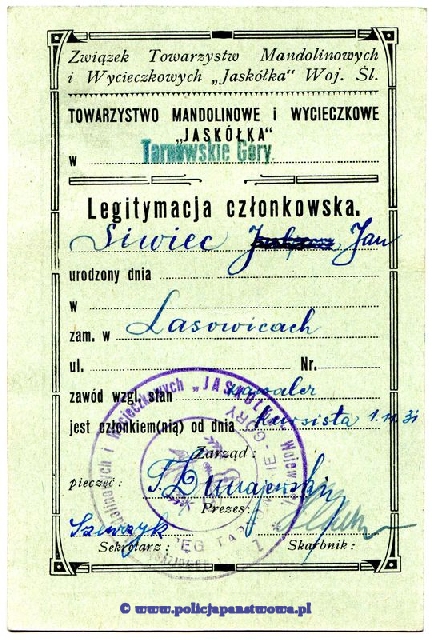 Związek Towarzystw Mandolinowych
i Wycieczkowych „Jaskółka” Woj. Śl.
TOWARZYSTWO MANDOLINOWE i WYCIECZKOWE
„JASKÓŁKA”
w Tarnowskie Góry
Legitymacja członkowska.
Siwiec Jan
urodzony dnia
w
zam. w Lasowicach
ul. Nr.
zawód wzgl. stan
jest członkiem(nią) od dnia 1. 31
Zarząd:
pieczęć:
Prezes:
Szewczyk
Sekretarz: Skarbnik:
i Wycieczkowych „JASKÓŁKA”
© www.policjapanstwowa.pl